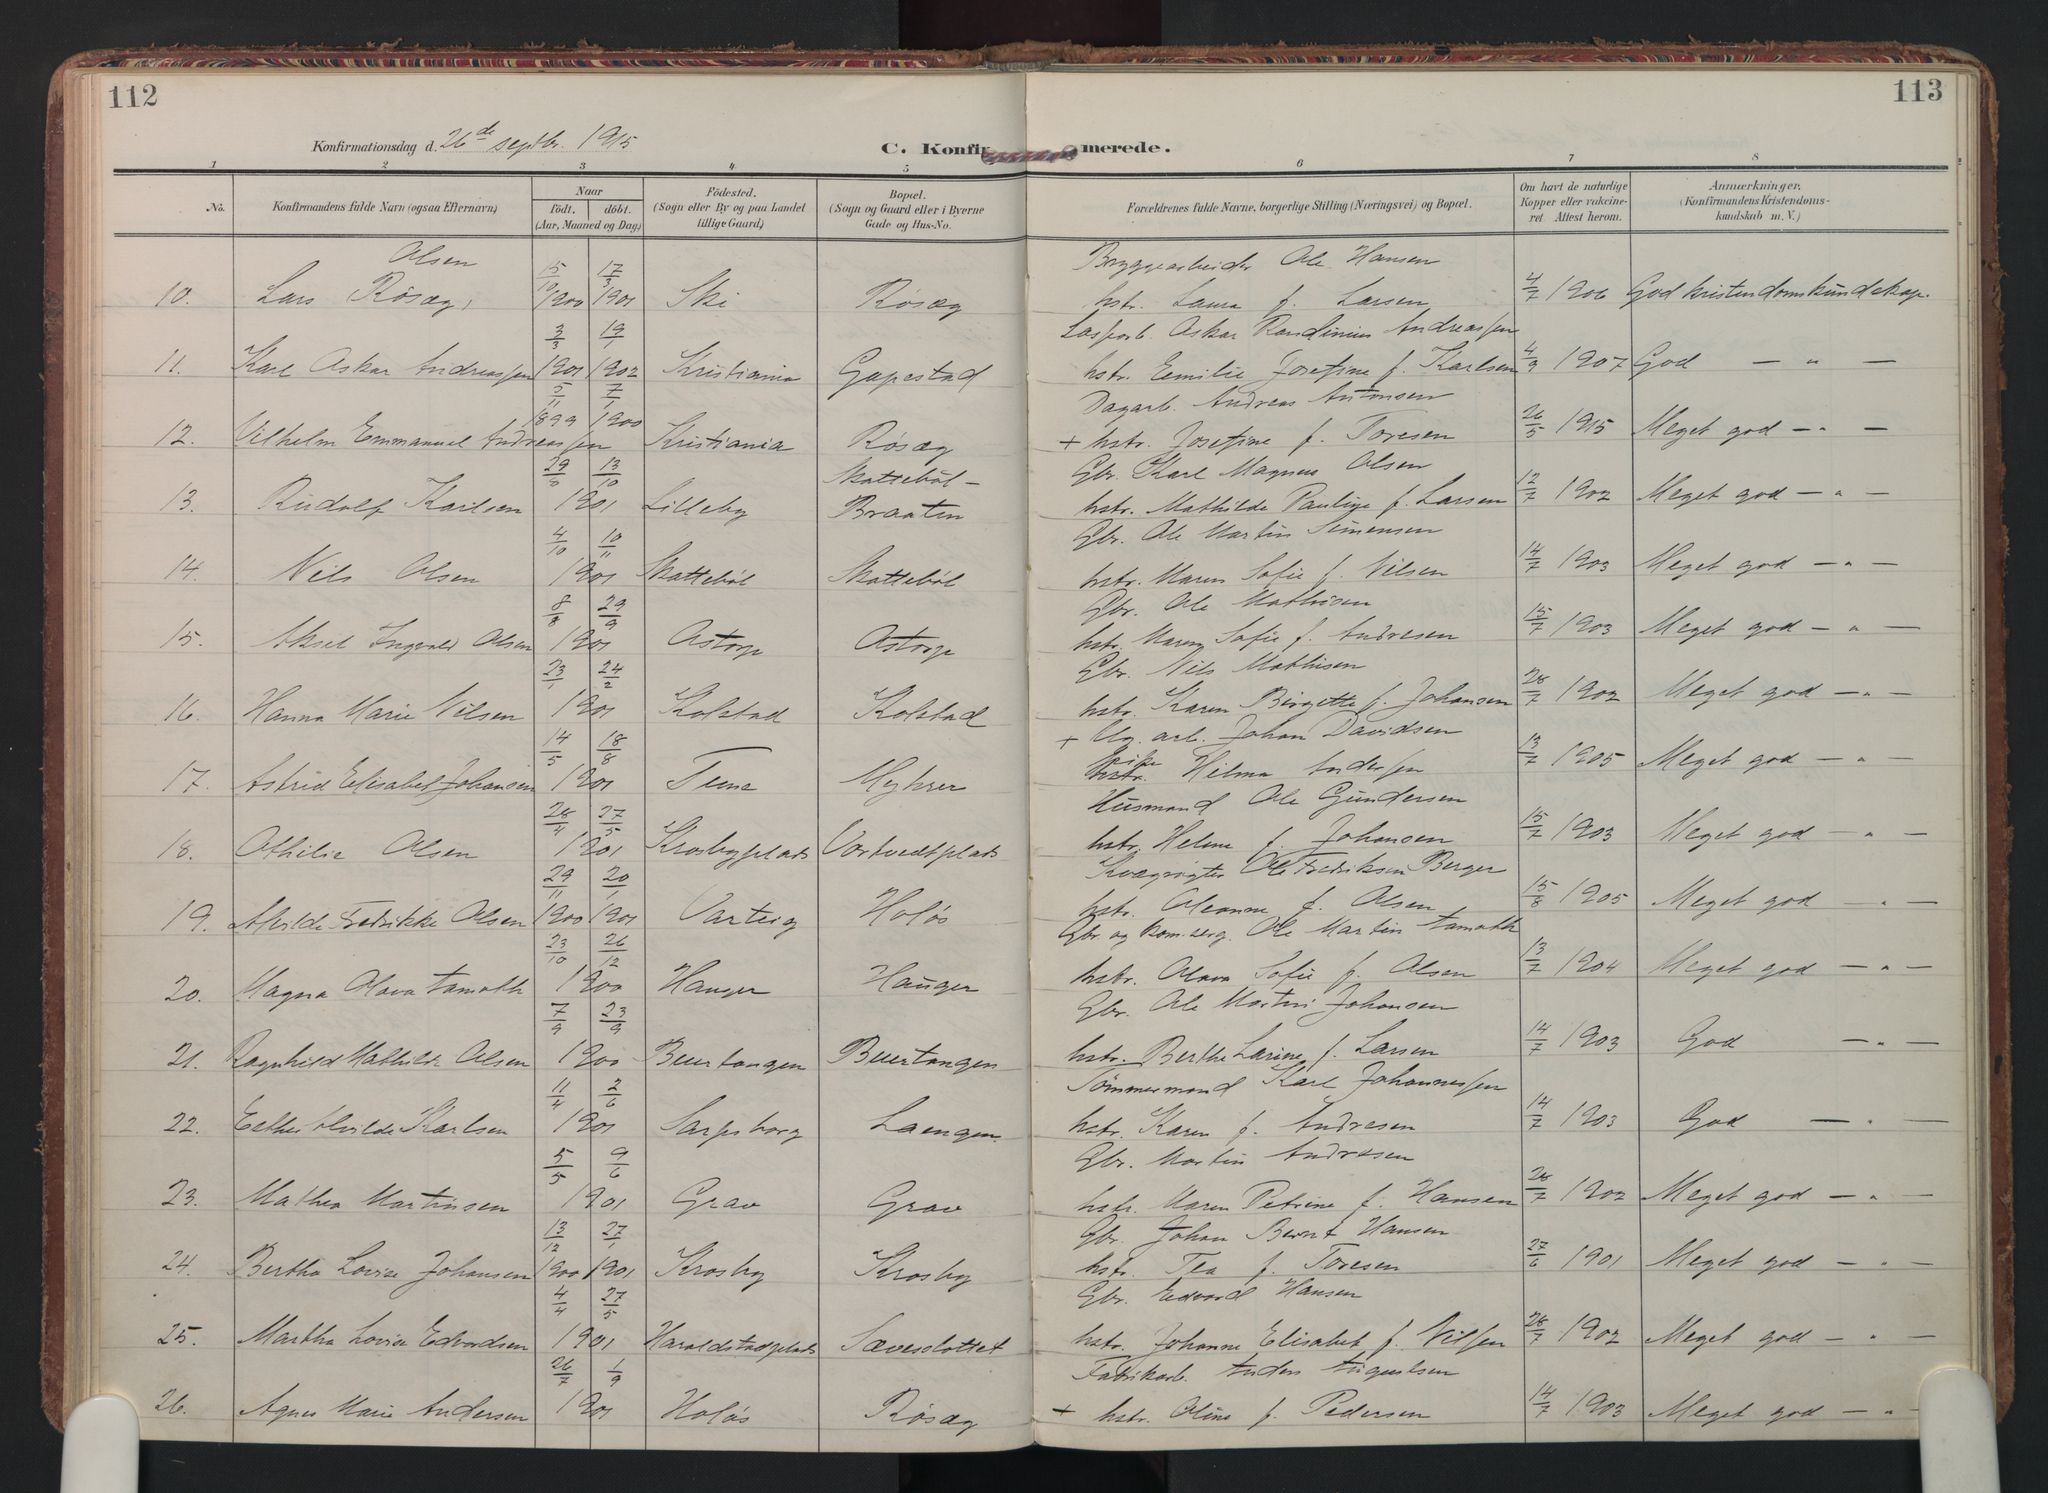 112
113
Konfirmationsdag d. 26de septbr. 1915
C. Konfirmerede.
1 2 3 4 5 6 7 8
No.
Konfirmandens fulde Navn (ogsaa Efternavn)
Naar
födt, döbt.
(Aar, Maaned og Dag)
Födested.
(Sogn eller By og paa Landet
tillige Gaard)
Bopæl.
(Sogn og Gaard eller i Byerne
Gade og Hus-No.
Forældrenes fulde Navne, borgerlige Stilling (Næringsvei) og Bopæl.
Om havt de naturlige
Kopper eller vakcine-
ret Attest herom.
Anmærkninger.
(Konfirmandens Kristendoms-
kundskab m. V.)
Olsen 15/10 17/3 Bryggearbeider Ole Hansen
10. Lars Rösæg, 1900 1901 Ski Rösæg hstr. Laura f. Larsen 4/7 1906 God kristendomskundskap.
3/3 19/1 Askar Andreassen
11. Karl Askar Andreassen 1901 1902 Kristiania Gapestad hstr. Emilie Josefine f. Karlsen 4/9 1907 God — " —
5/11 7/1 Dagarb. Andreas Antonsen
12. Vilhelm Emmanuel Andreassen 1899 1900 Kristiania Rösæg + hstr. Josefine f. Toresen 26/5 1915 Meget god — " —
29/8 13/10 Skattebøl- Gbr. Karl Magnus Olsen
13. Rudolf Karlsen 1901 Lilleby Braaten hstr. Mathilde Pauline f. Larsen 12/7 1902 Meget god — " —
4/10 10/11 Gbr. Ole Martin Simensen
14. Nils Olsen 1901 Skattebøl Skattebøl hstr. Maren Sofie f. Nilsen 14/7 1903 Meget god — " —
8/8 29/9 Gbr. Ole Mathisen
15. Aksel Ingvald Olsen 1901 Astorp Astorp hstr. Maren Sofie f. Andresen 15/7 1903 Meget god — " —
23/1 24/2 Gbr. Nils Mathisen
16. Hanna Marie Nilsen 1901 Kolstad Kolstad hstr. Karen Birgette f. Johansen 28/7 1902 Meget god — " —
14/5 18/8 + Ug. arb. Johan Davidsen
17. Astrid Elisabet Johansen 1901 Tune Myhrer pike Hilma Andersen 13/7 1905 Meget god — " —
28/4 27/5 Husmand Ole Gundersen
18. Othilie Olsen 1901 Krosbyplads Vortvedtplads hstr. Helene f. Johansen 15/7 1903 Meget god — " —
29/11 20/1 Kvægrøgter Ole Fredriksen Berger
19. Alvilde Fredrikke Olsen 1900 1901 Varteig Holös hstr. Oleanne f. Olsen 15/8 1905 Meget god — " —
23/10 26/12 Gbr. og Ole Martin Tamoth
20. Magna Olava Tamoth 1900 Hauger Hauger hstr. Olava Sofie f. Olsen 13/7 1904 Meget god — " —
7/9 23/9 Gbr. Ole Martin Johansen
21. Ragnhild Mathilde Olsen 1900 Beiertangen Beiertangen hstr. Berthe Larine f. Larsen 14/7 1903 God — " —
11/4 2/6 Tömmermand Karl Johannessen
22. Esther Alvilde Karlsen 1901 Sarpsborg Laengen hstr. Karen f. Andresen 14/7 1903 God — " —
5/5 9/6 Gbr. Martin Andresen
23. Mathea Martinsen 1901 Grav Grav hstr. Maren Petrine f. Hansen 28/7 1902 Meget god — " —
13/12 27/1 Gbr. Johan Bernt Hansen
24. Bertha Lovise Johansen 1900 1901 Krosby Krosby hstr. Tea f. Toresen 27/6 1901 Meget god — " —
4/4 27/5 Gbr. Edvard Hansen
25. Martha Lovise Edvardsen 1901 Haraldstadplads Sævesslottet hstr. Johanne Elisabet f. Nilsen 28/7 1902 Meget god — " —
26/7 1/9 Fabrikarb. Anders Augustsen
26. Agnes Marie Andersen 1901 Holös Rösæg + hstr. Oline f. Pedersen 14/7 1903 Meget god — " —